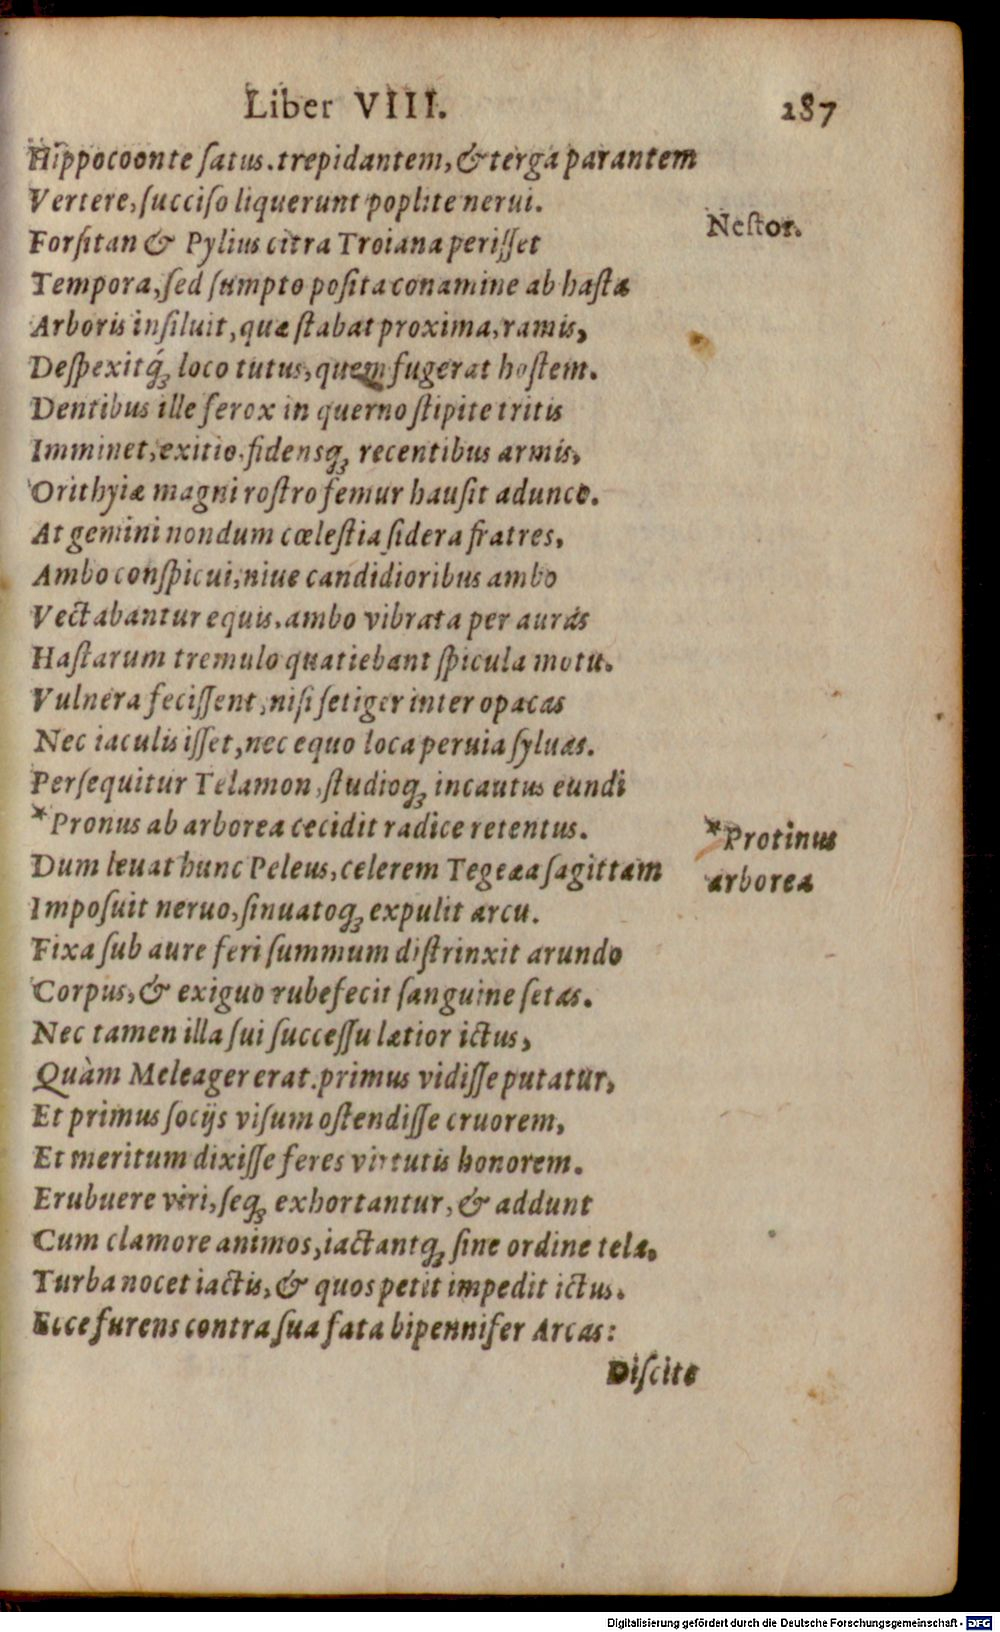 Liber VIII. 287
Hippocoonte ſatus. trepidantem, & terga parantem
Vertere, ſucciſo liquerunt poplite nerui.
Nestor.
Forſitan & Pylius citra Troiana periſſet
Tempora, ſed ſumpto poſita conamine ab haſta
Arboris inſiluit, quæ ſtabat proxima, ramis,
Deſpexitq́ꝫ loco tutus, quem fugerat hoſtem.
Dentibus ille ferox in querno ſtipite tritis
Imminet, exitio, fidensqꝫ recentibus armis,
Orithyiæ magni roſtro femur hauſit adunco.
At gemini nondum cœleſtia ſidera fratres,
Ambo conſpicui, niue candidioribus ambo
Vectabantur equis, ambo vibrata per auras
Haſtarum tremulo quatiebant ſpicula motu.
Vulnera feciſſent, niſi ſetiger inter opacas
Nec iaculis iſſet, nec equo loca peruia ſyluas.
Perſequitur Telamon, ſtudioqꝫ incautus eundi
*Pronus ab arborea cecidit radice retentus.
*Protinus
arborea
Dum leuat hunc Peleus, celerem Tegeæa ſagittam
Impoſuit neruo, ſinuatoqꝫ expulit arcu.
Fixa ſub aure feri ſummum diſtrinxit arundo
Corpus, & exiguo rubefecit ſanguine ſetas.
Nec tamen illa ſui ſucceſſu lætior ictus,
Quàm Meleager erat. primus vidiſſe putatur,
Et primus ſocijs viſum oſtendiſſe cruorem,
Et meritum dixiſſe feres virtutis honorem.
Erubuere viri, ſeqꝫ exhortantur, & addunt
Cum clamore animos, iactantqꝫ ſine ordine tela.
Turba nocet iactis, & quos petit impedit ictus.
Ecce furens contra ſua fata bipennifer Arcas:
Diſcite
Digitalisierung gefördert durch die Deutsche Forschungsgemeinschaft - DFG